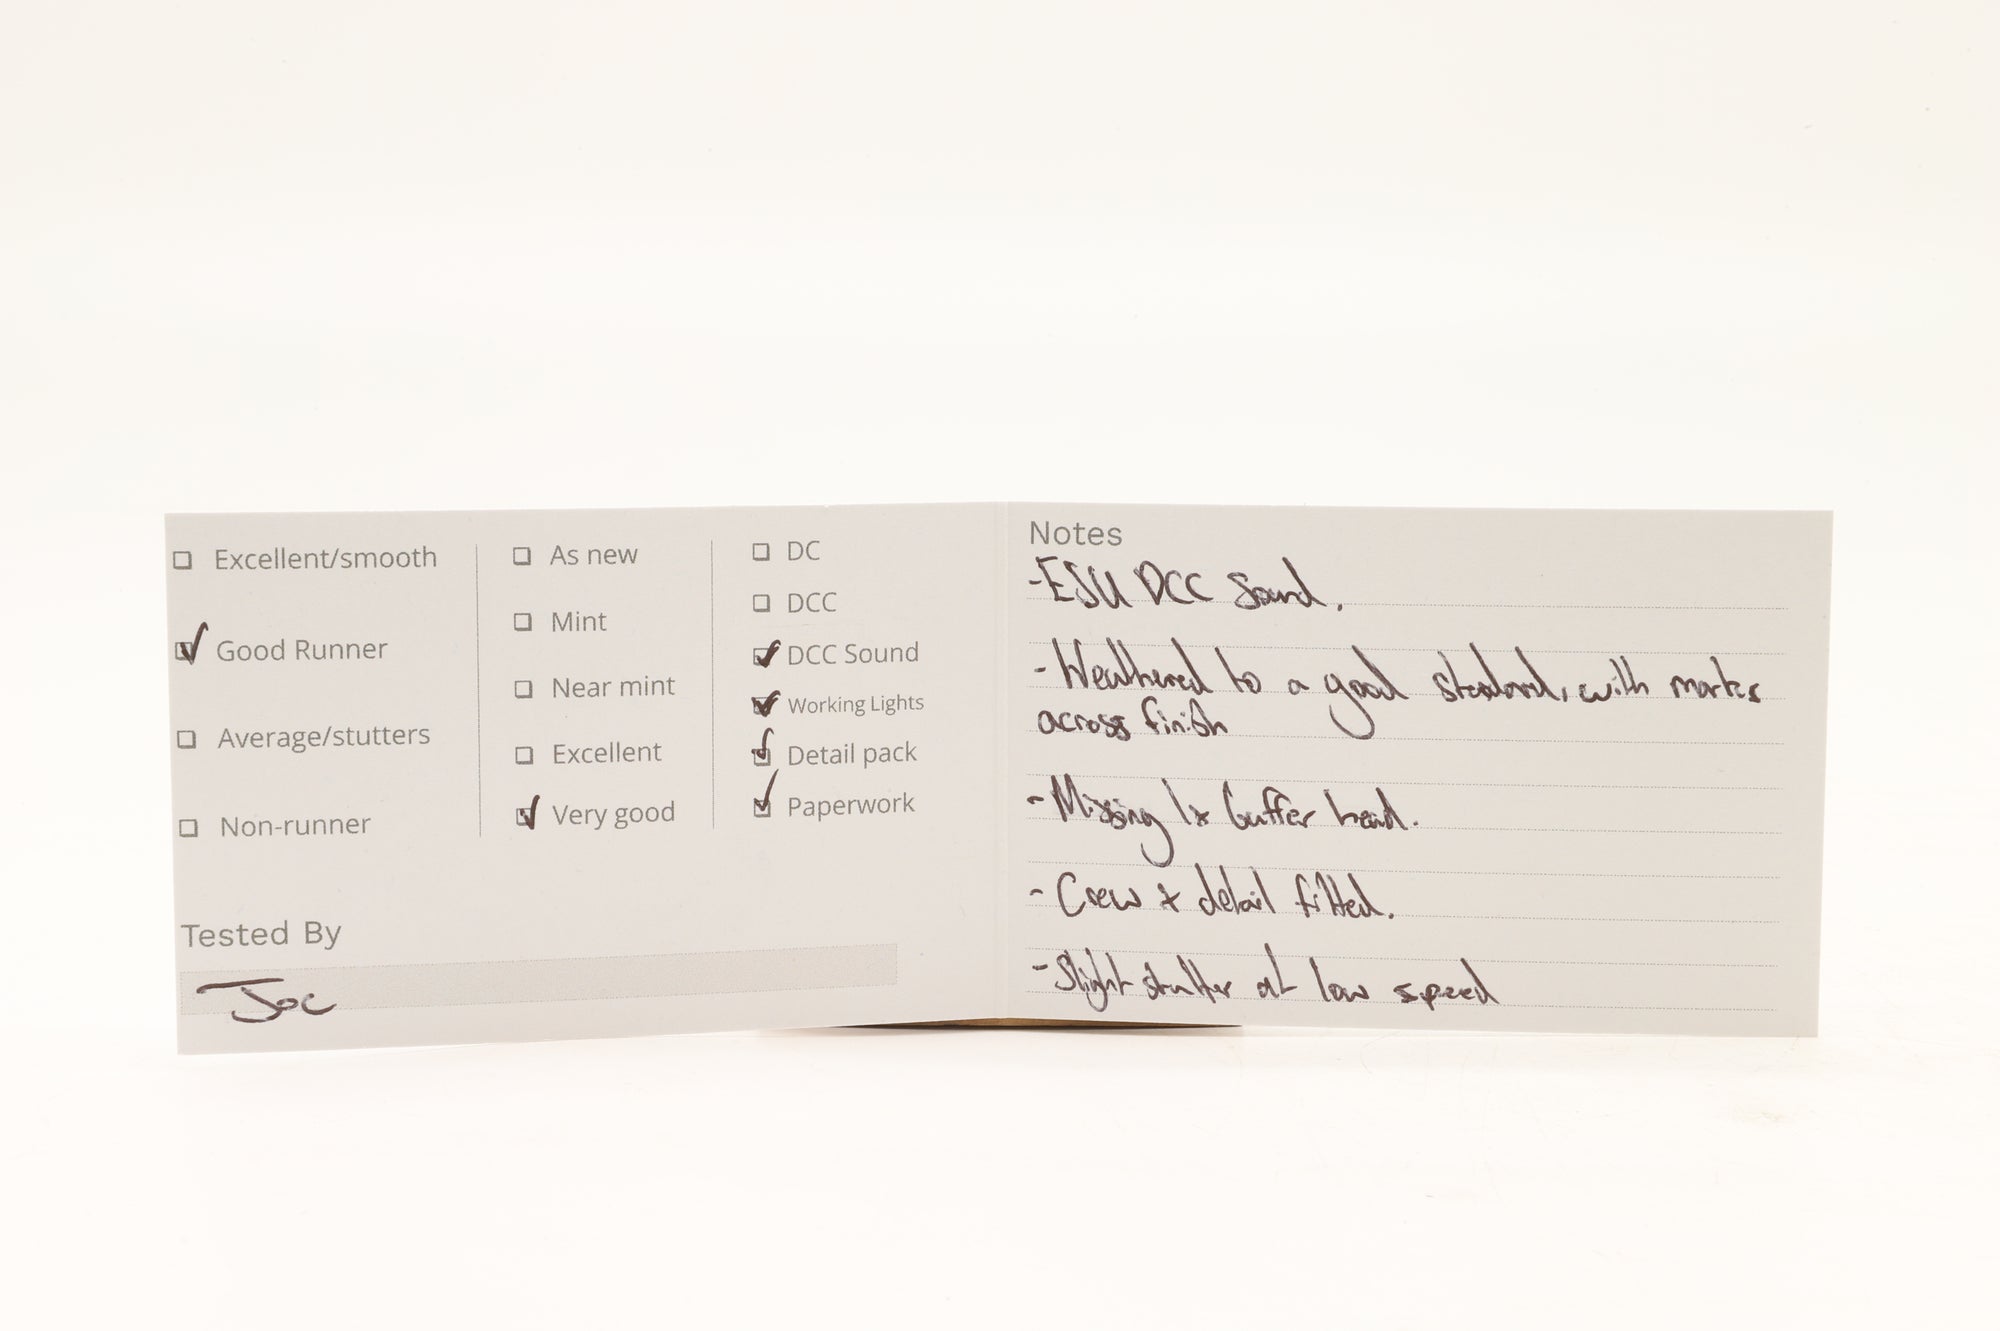 Excellent/smooth
Good Runner
Average/stutters
Non-runner
As new
Mint
Near mint
Excellent
Very good
DC
DCC
DCC Sound
Working Lights
Detail pack
Paperwork
Tested By
Joe
Notes
-ESU DCC Sound.
-Weathered to a good standard, with marks
across finish
-Missing 1x buffer head.
-Crew + detail fitted.
-Slight stutter at low speed